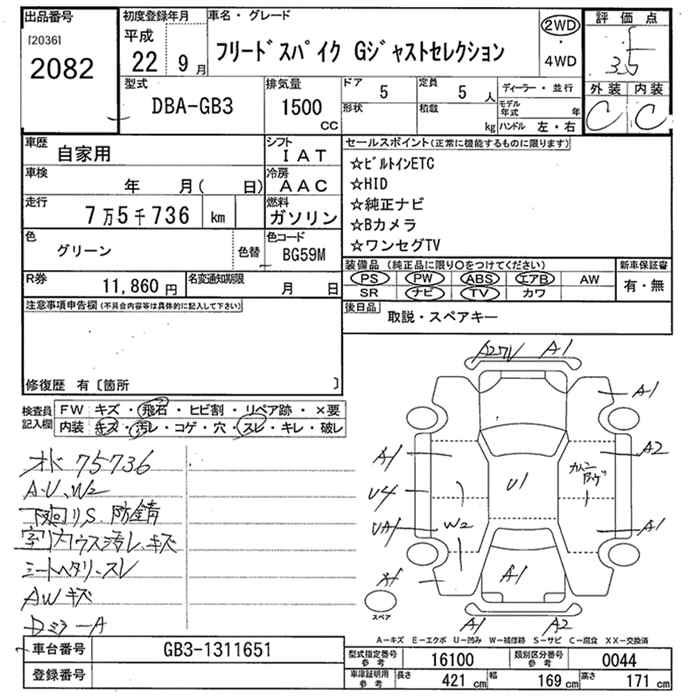 出品番号
[2036]
2082
初度登録年月
平成
22 9月
車名・グレード
フリードスパイク Gジャストセレクション
2WD
・
4WD
評価点
3.5
外装 内装
C C
型式
DBA-GB3
排気量
1500
CC
ドア 5
形状
定員 5 人
積載 kg
ディーラー・並行
モデル年式 年
ハンドル 左・右
車歴
自家用
シフト
IAT
車検
年 月( 日)
冷房
AAC
走行
7万5千736 km
燃料
ガソリン
色
グリーン
色替
色コード
BG59M
R券
11,860円
名変通知期限
月 日
セールスポイント(正常に機能するものに限ります)
☆ビルトインETC
☆HID
☆純正ナビ
☆Bカメラ
☆ワンセグTV
装備品(純正品に限り○をつけてください)
PS PW ABS エアB AW
SR ナビ TV カワ
新車保証書
有・無
後日品
取説・スペアキー
注意事項申告欄(不具合内容等は具体的に記入して下さい)
修復歴 有〔箇所 〕
検査員
記入欄
FW キズ・飛石・ヒビ割・リペア跡・×要
内装 キズ・汚レ・コゲ・穴・スレ・キレ・破レ
オド 75736
A・U、W2
下回りS、防錆
室内ウス汚レ、キズ
シートヘタリ、スレ
AWキズ
DミラーA
A2 A1
A1
A1 A2
U4 U1
UA1 W2 A1
A1
スペア
A1 A2
A-キズ E-エクボ U-凹み W-補修跡 S-サビ C-腐食 XX-交換済
車台番号
GB3-1311651
登録番号
型式指定番号
参考
16100
類別区分番号
参考
0044
車庫証明用
参考
長さ 421 cm
幅 169 cm
高さ 171 cm